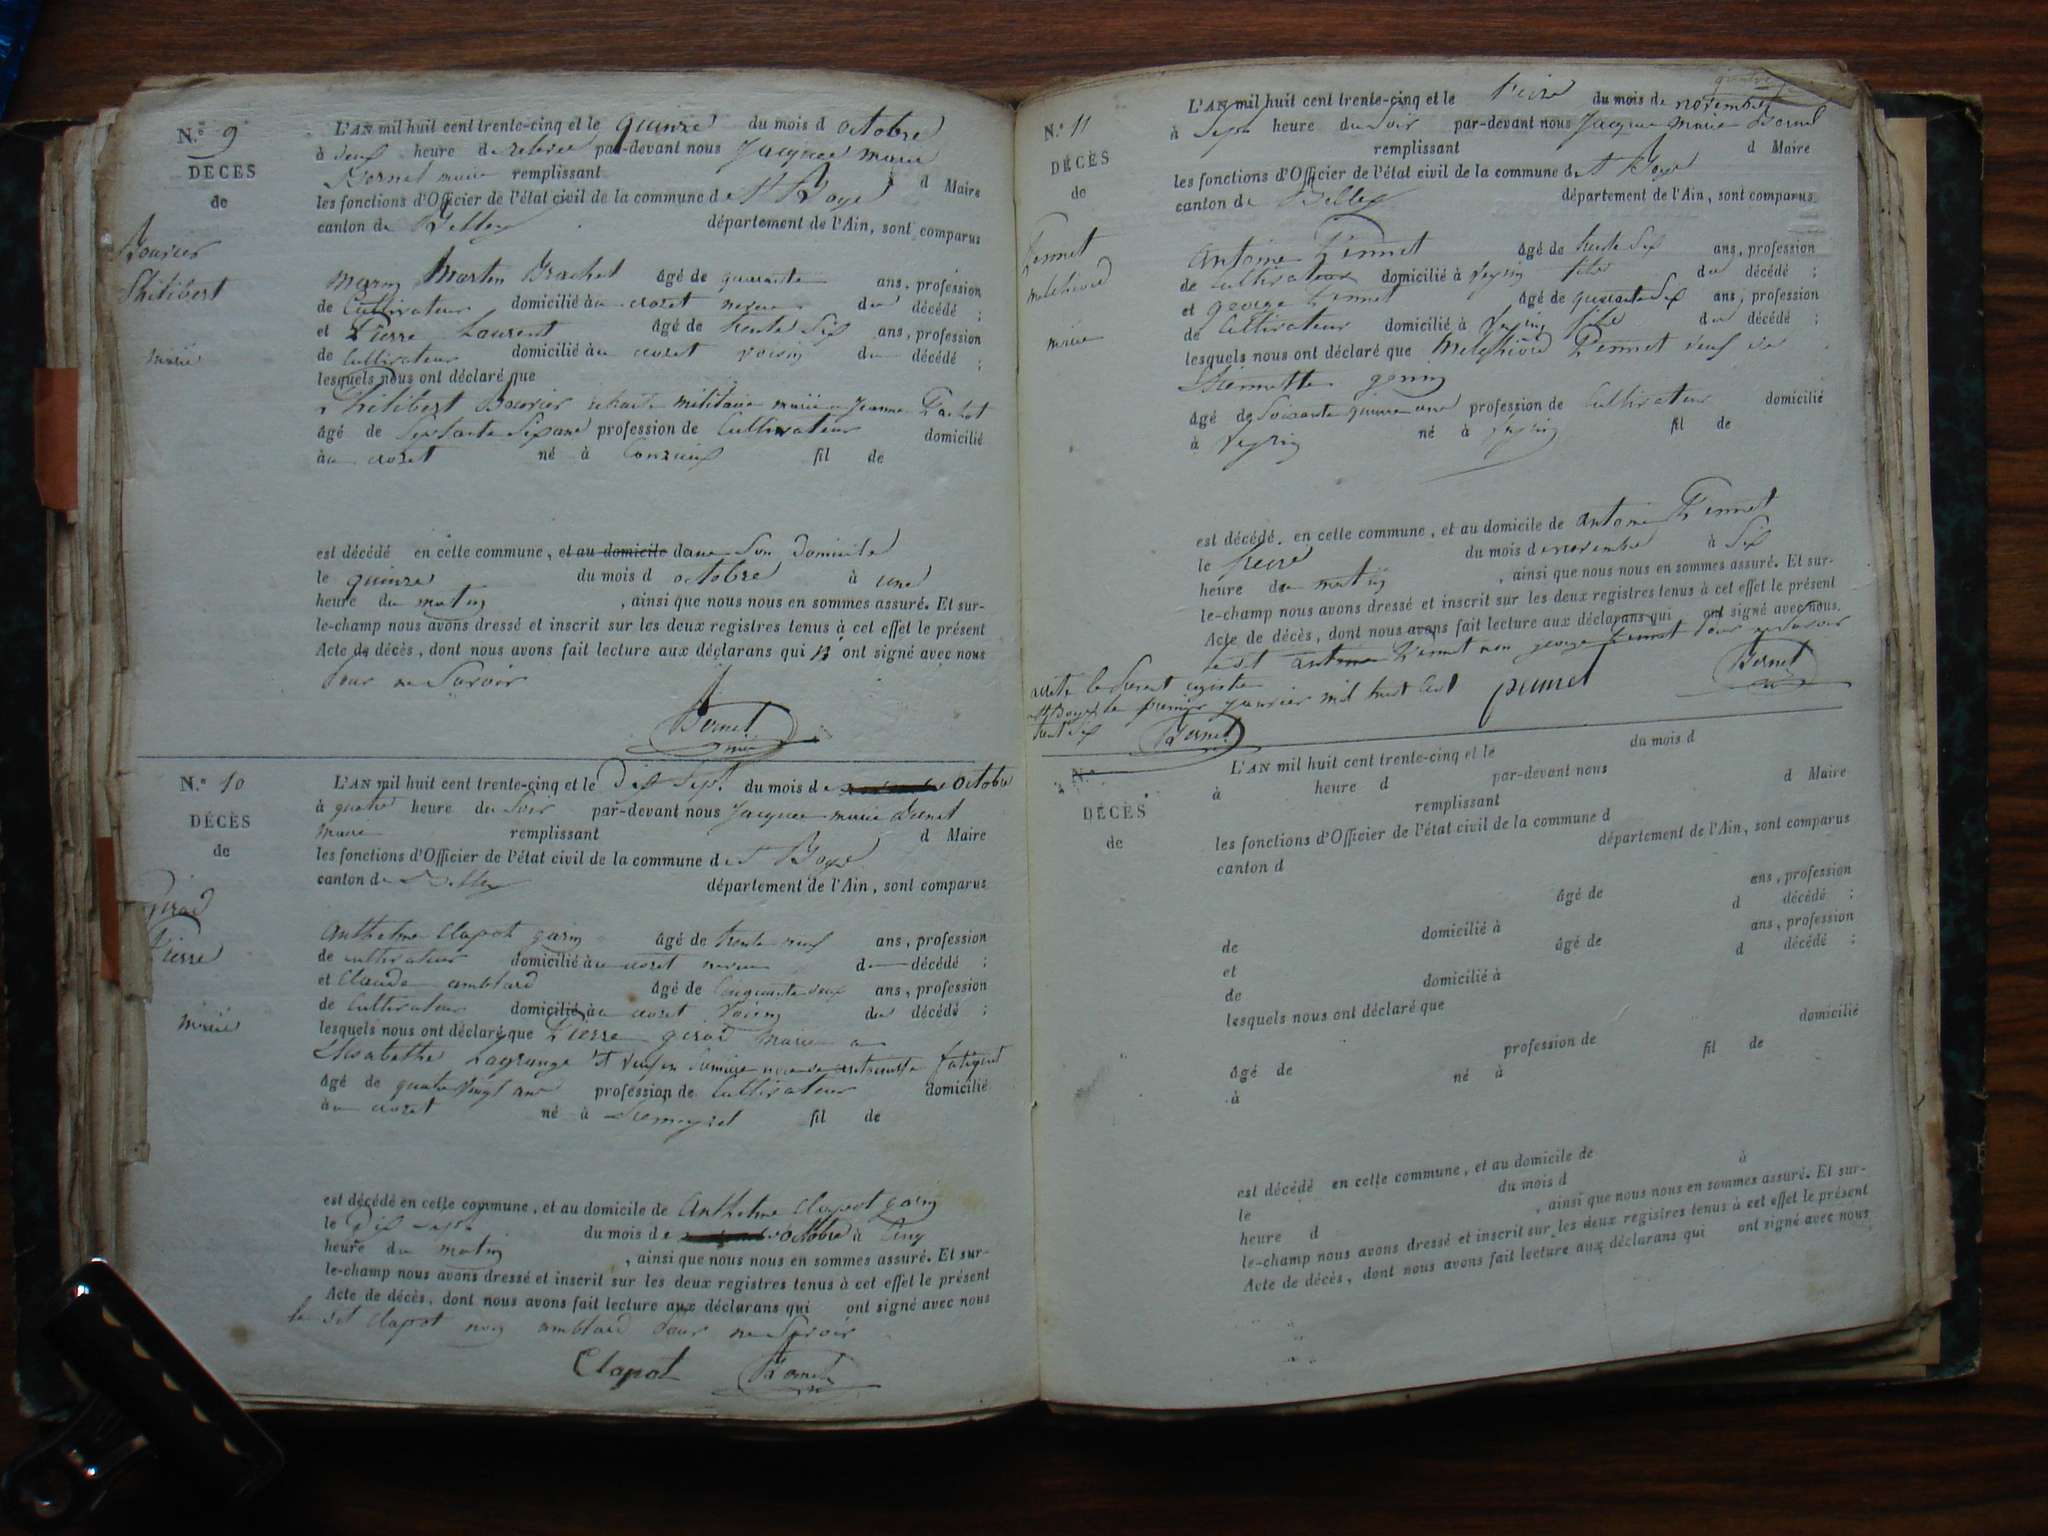 N.º 9
DÉCÈS
de
Bouvier
Philibert
marié
L'AN mil huit cent trente-cinq et le quinze du mois d octobre
à deux heure de relevée par-devant nous Jacques marie
Bornet maire remplissant d Maire
les fonctions d'Officier de l'état civil de la commune de St Boys
canton de Belley département de l'Ain, sont comparus
Martin Brachet âgé de quarante ans, profession
de Cultivateur domicilié au crozet neveu du décédé ;
et Pierre Laurent âgé de trente Six ans, profession
de Cultivateur domicilié au crozet voisin du décédé ;
lesquels nous ont déclaré que
Philibert Bouvier retraité militaire marié a Jeanne
âgé de Septante Six ans profession de Cultivateur domicilié
au crozet né à Conzieux fil de
est décédé en cette commune, et au domicile dans Son domicile
le quinze du mois d octobre à une
heure du matin , ainsi que nous nous en sommes assuré. Et sur-
le-champ nous avons dressé et inscrit sur les deux registres tenus à cet effet le présent
Acte de décès, dont nous avons fait lecture aux déclarans qui n ont signé avec nous
pour ne Savoir
Bornet
N.º 10
DÉCÈS
de
Girod
Pierre
marié
L'AN mil huit cent trente-cinq et le Dix Sept du mois de octobre
à quatre heure du Soir par-devant nous Jacques marie Bornet
maire remplissant d Maire
les fonctions d'Officier de l'état civil de la commune de St Boys
canton de Belley département de l'Ain, sont comparus
Anthelme Clapot garin âgé de trente neuf ans, profession
de cultivateur domicilié au crozet neveu d décédé ;
et Claude amblard âgé de Cinquante deux ans, profession
de Cultivateur domicilié au crozet voisin du décédé ;
lesquels nous ont déclaré que Pierre girod Marié a
Elisabethe Lagrange et veuf en
âgé de quatre vingt ans profession de Cultivateur domicilié
au crozet né à Premeyzel fil de
est décédé en cette commune, et au domicile de Anthelme Clapot garin
le Dix sept du mois de octobre à Cinq
heure du matin , ainsi que nous nous en sommes assuré. Et sur-
le-champ nous avons dressé et inscrit sur les deux registres tenus à cet effet le présent
Acte de décès, dont nous avons fait lecture aux déclarans qui ont signé avec nous
le dit Clapot non amblard pour ne Savoir
Clapot Bornet
N.º 11
DÉCÈS
de
Pennet
melchiord
L'AN mil huit cent trente-cinq et le treize du mois de novembre
à Sept heure du Soir par-devant nous Jacques Marie Bornet
remplissant d Maire
les fonctions d'Officier de l'état civil de la commune de St Boys
canton de Belley département de l'Ain, sont comparus
Antoine Pennet âgé de trente Six ans, profession
de Cultivateur domicilié à Peyzin fils du décédé ;
et george Pennet âgé de quarante Six ans, profession
de Cultivateur domicilié à Peyzin fils du décédé ;
lesquels nous ont déclaré que Melchiord Pennet veuf de
Etiennette genin
âgé de Soixante quinze ans profession de Cultivateur domicilié
à Peyzin né à Peyzin fil de
est décédé en cette commune, et au domicile de antoine Pennet
le treize du mois de novembre à Six
heure du matin , ainsi que nous nous en sommes assuré. Et sur-
le-champ nous avons dressé et inscrit sur les deux registres tenus à cet effet le présent
Acte de décès, dont nous avons fait lecture aux déclarans qui ont signé avec nous
le dit antoine Pennet non george Pennet pour ne Savoir
arrêté le present registre
St Boys le premier janvier mil huit cent
trent Six
pennet Bornet
Bornet
N.º
DÉCÈS
de
L'AN mil huit cent trente-cinq et le du mois d
à heure d par-devant nous
remplissant d Maire
les fonctions d'Officier de l'état civil de la commune d
canton d département de l'Ain, sont comparus
âgé de ans, profession
de domicilié à d décédé ;
et âgé de ans, profession
de domicilié à d décédé ;
lesquels nous ont déclaré que
âgé de profession de domicilié
à né à fil de
est décédé en cette commune, et au domicile de
le du mois d à
heure d , ainsi que nous nous en sommes assuré. Et sur-
le-champ nous avons dressé et inscrit sur les deux registres tenus à cet effet le présent
Acte de décès, dont nous avons fait lecture aux déclarans qui ont signé avec nous